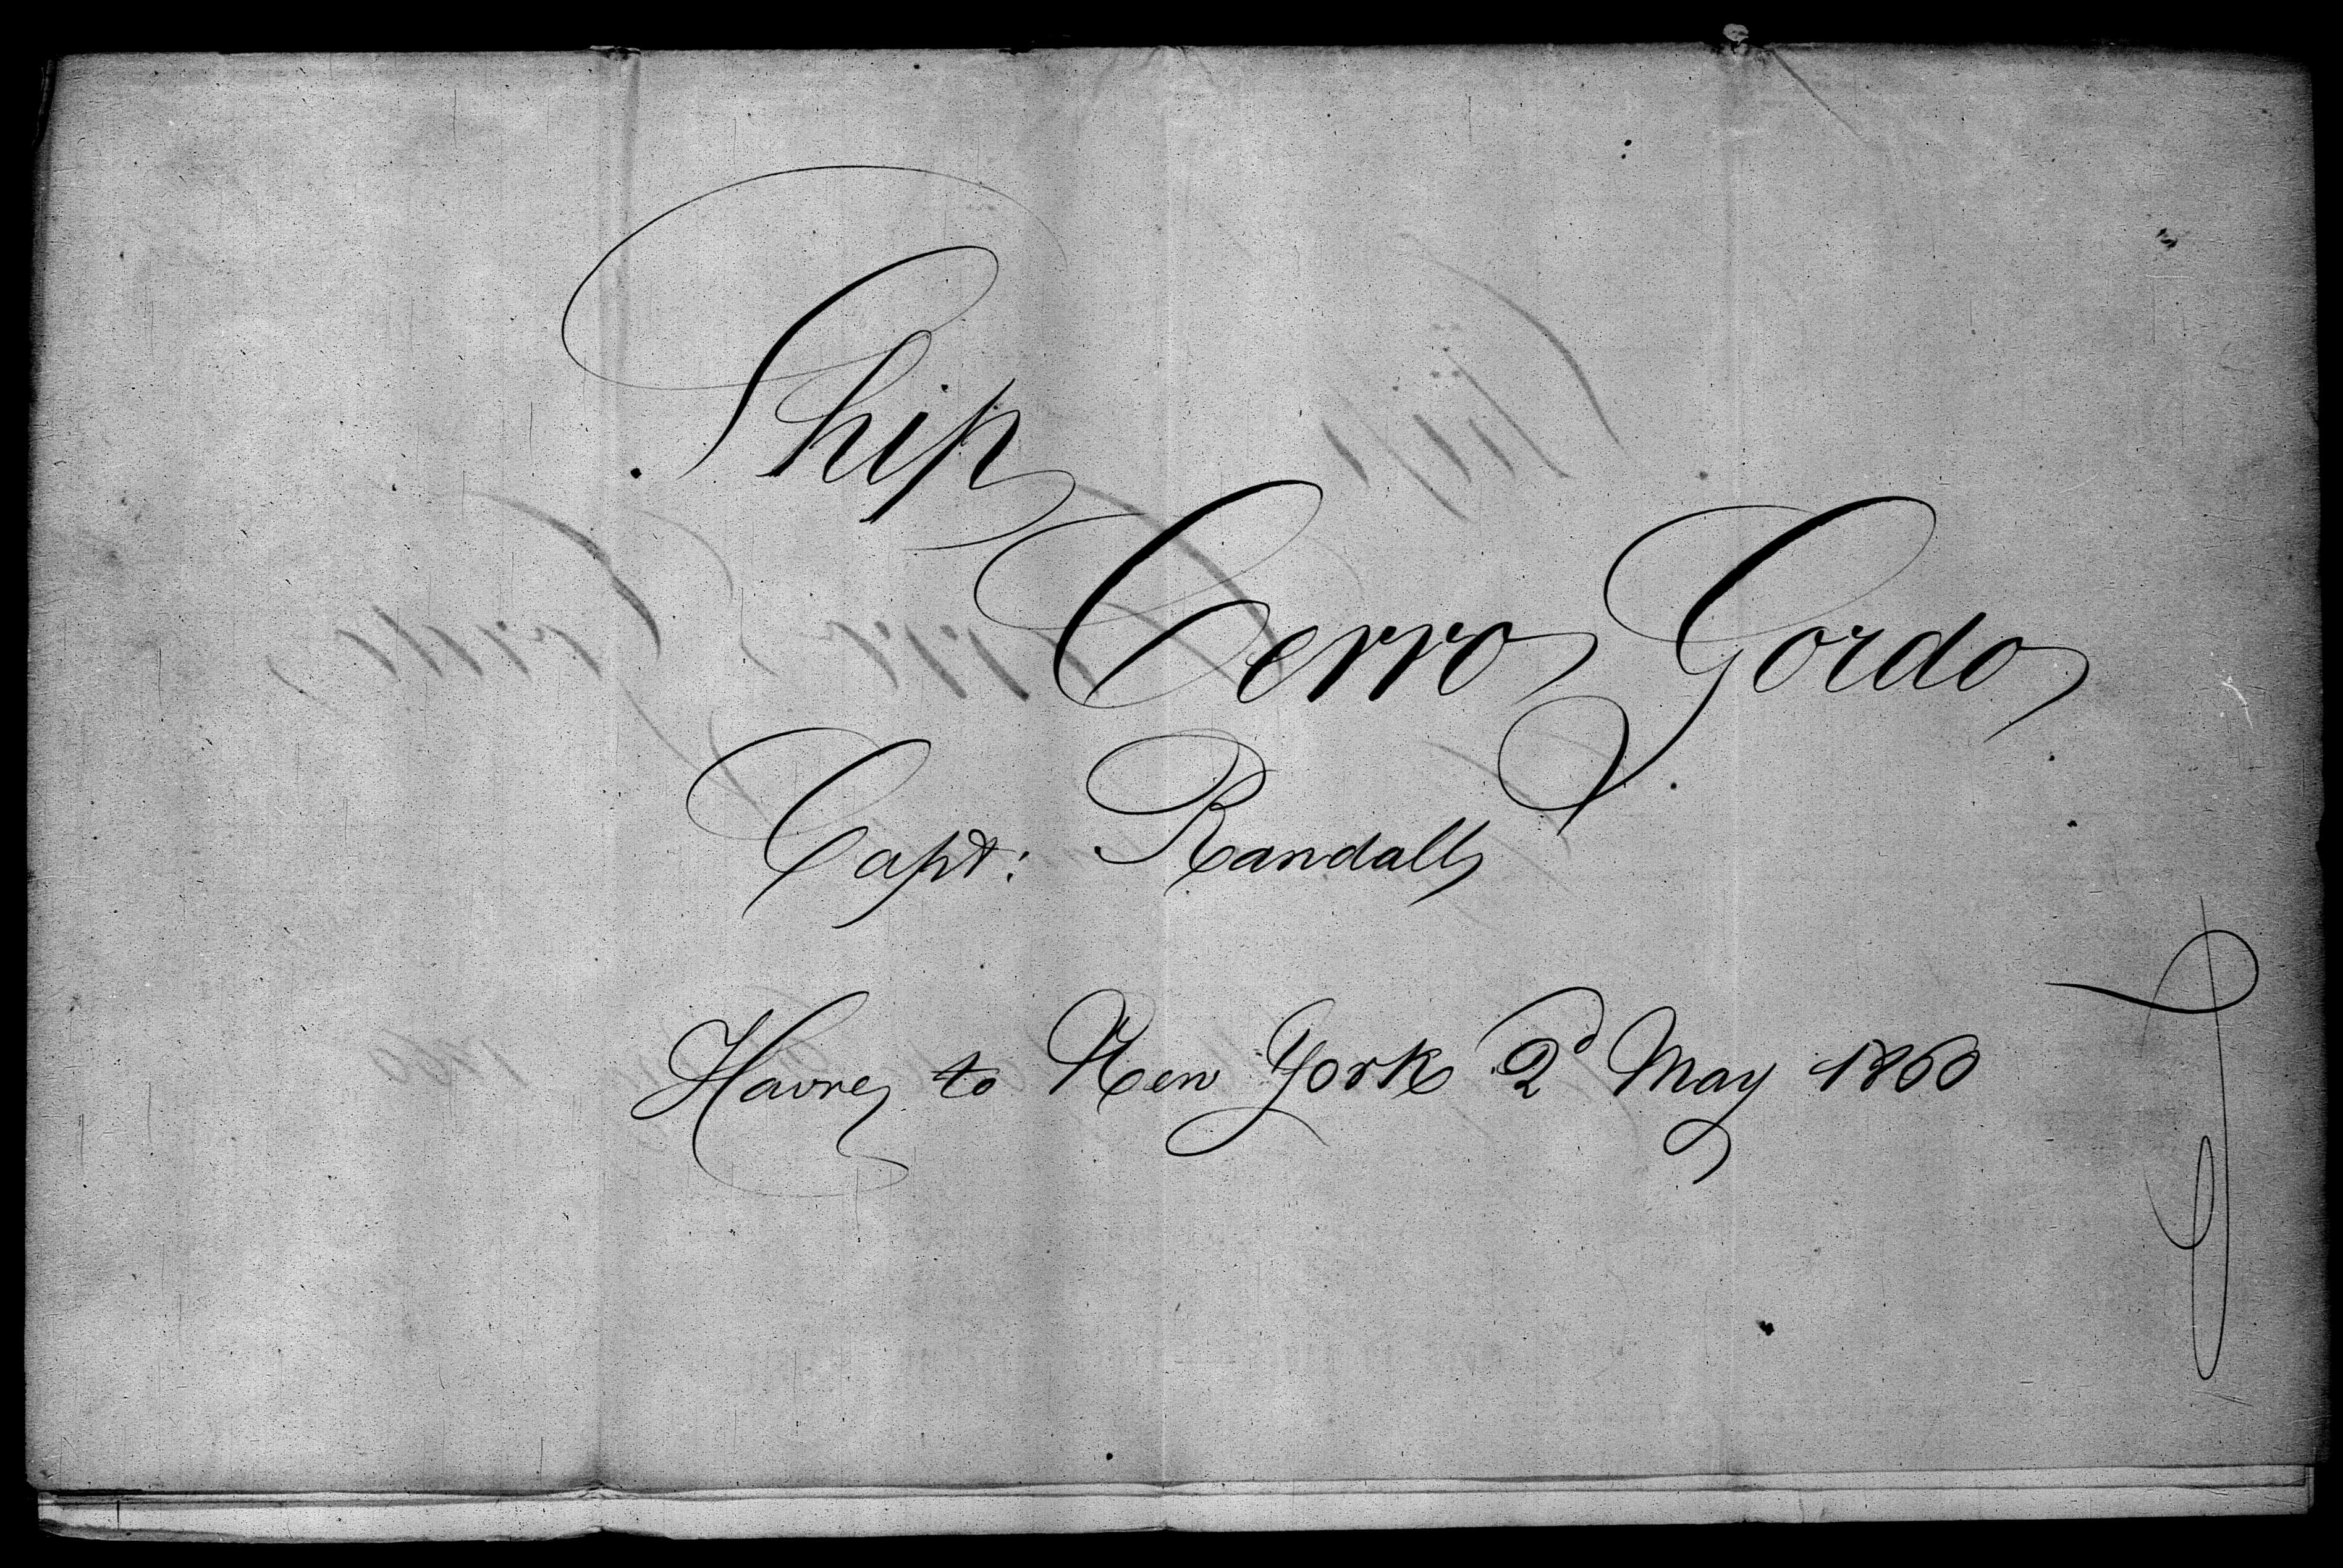 Ship
Cerro Gordo
Capt: Randall
Havre to New York 2d May 1860